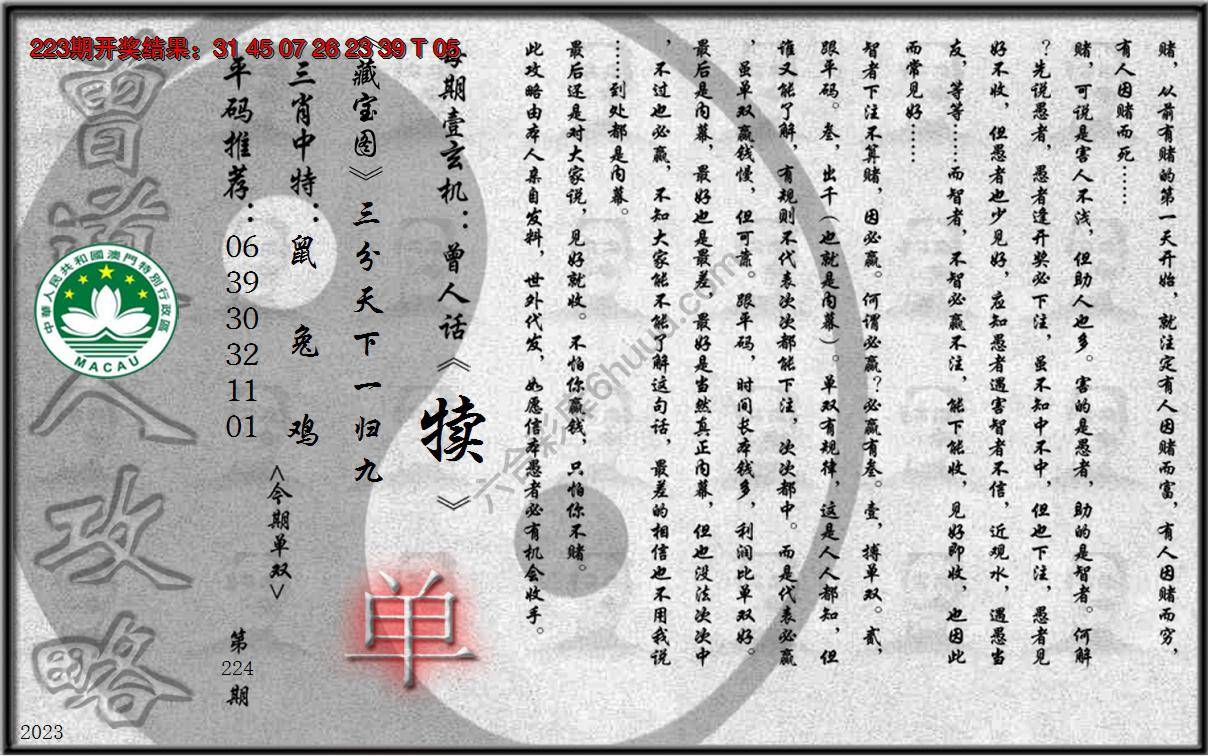 223期开奖结果：31 45 07 26 23 39 T 05
赌，从前有赌的第一天开始，就注定有人因赌而富，有人因赌而穷，
有人因赌而死……
赌，可说是害人不浅，但助人也多。害的是愚者，助的是智者。何解
？先说愚者，愚者逢开奖必下注，虽不知中不中，但也下注，愚者见
好不收，但愚者也少见好，应知愚者遇害智者不信，近观水，遇愚当
友，等等……而智者，不智必赢不注，能下能收，见好即收，也因此
而常见好……
智者下注不算赌，因必赢。何谓必赢？必赢有叁。壹，搏单双。贰，
跟平码。叁，出千（也就是内幕）。单双有规律，这是人人都知，但
谁又能了解，有规则不代表次次都能下注，次次都中。而是代表必赢
，虽单双赢钱慢，但可靠。跟平码，时间长本钱多，利润比单双好。
最后是内幕，最好也是最差，最好是当然真正内幕，但也没法次次中
，不过也必赢，不知大家能不能了解这句话，最差的相信也不用我说
……到处都是内幕。
最后还是对大家说，见好就收。不怕你赢钱，只怕你不赌。
此攻略由本人亲自发料，世外代发，如愿信本愚者必有机会收手。
每期壹玄机：曾人话《犊》
《藏宝图》三分天下一归九
单
三肖中特：鼠 兔 鸡
<今期单双>
平码推荐：
06
39
30
32
11
01
第
224
期
曾道人攻略
中華人民共和國澳門特別行政區
MACAU
2023